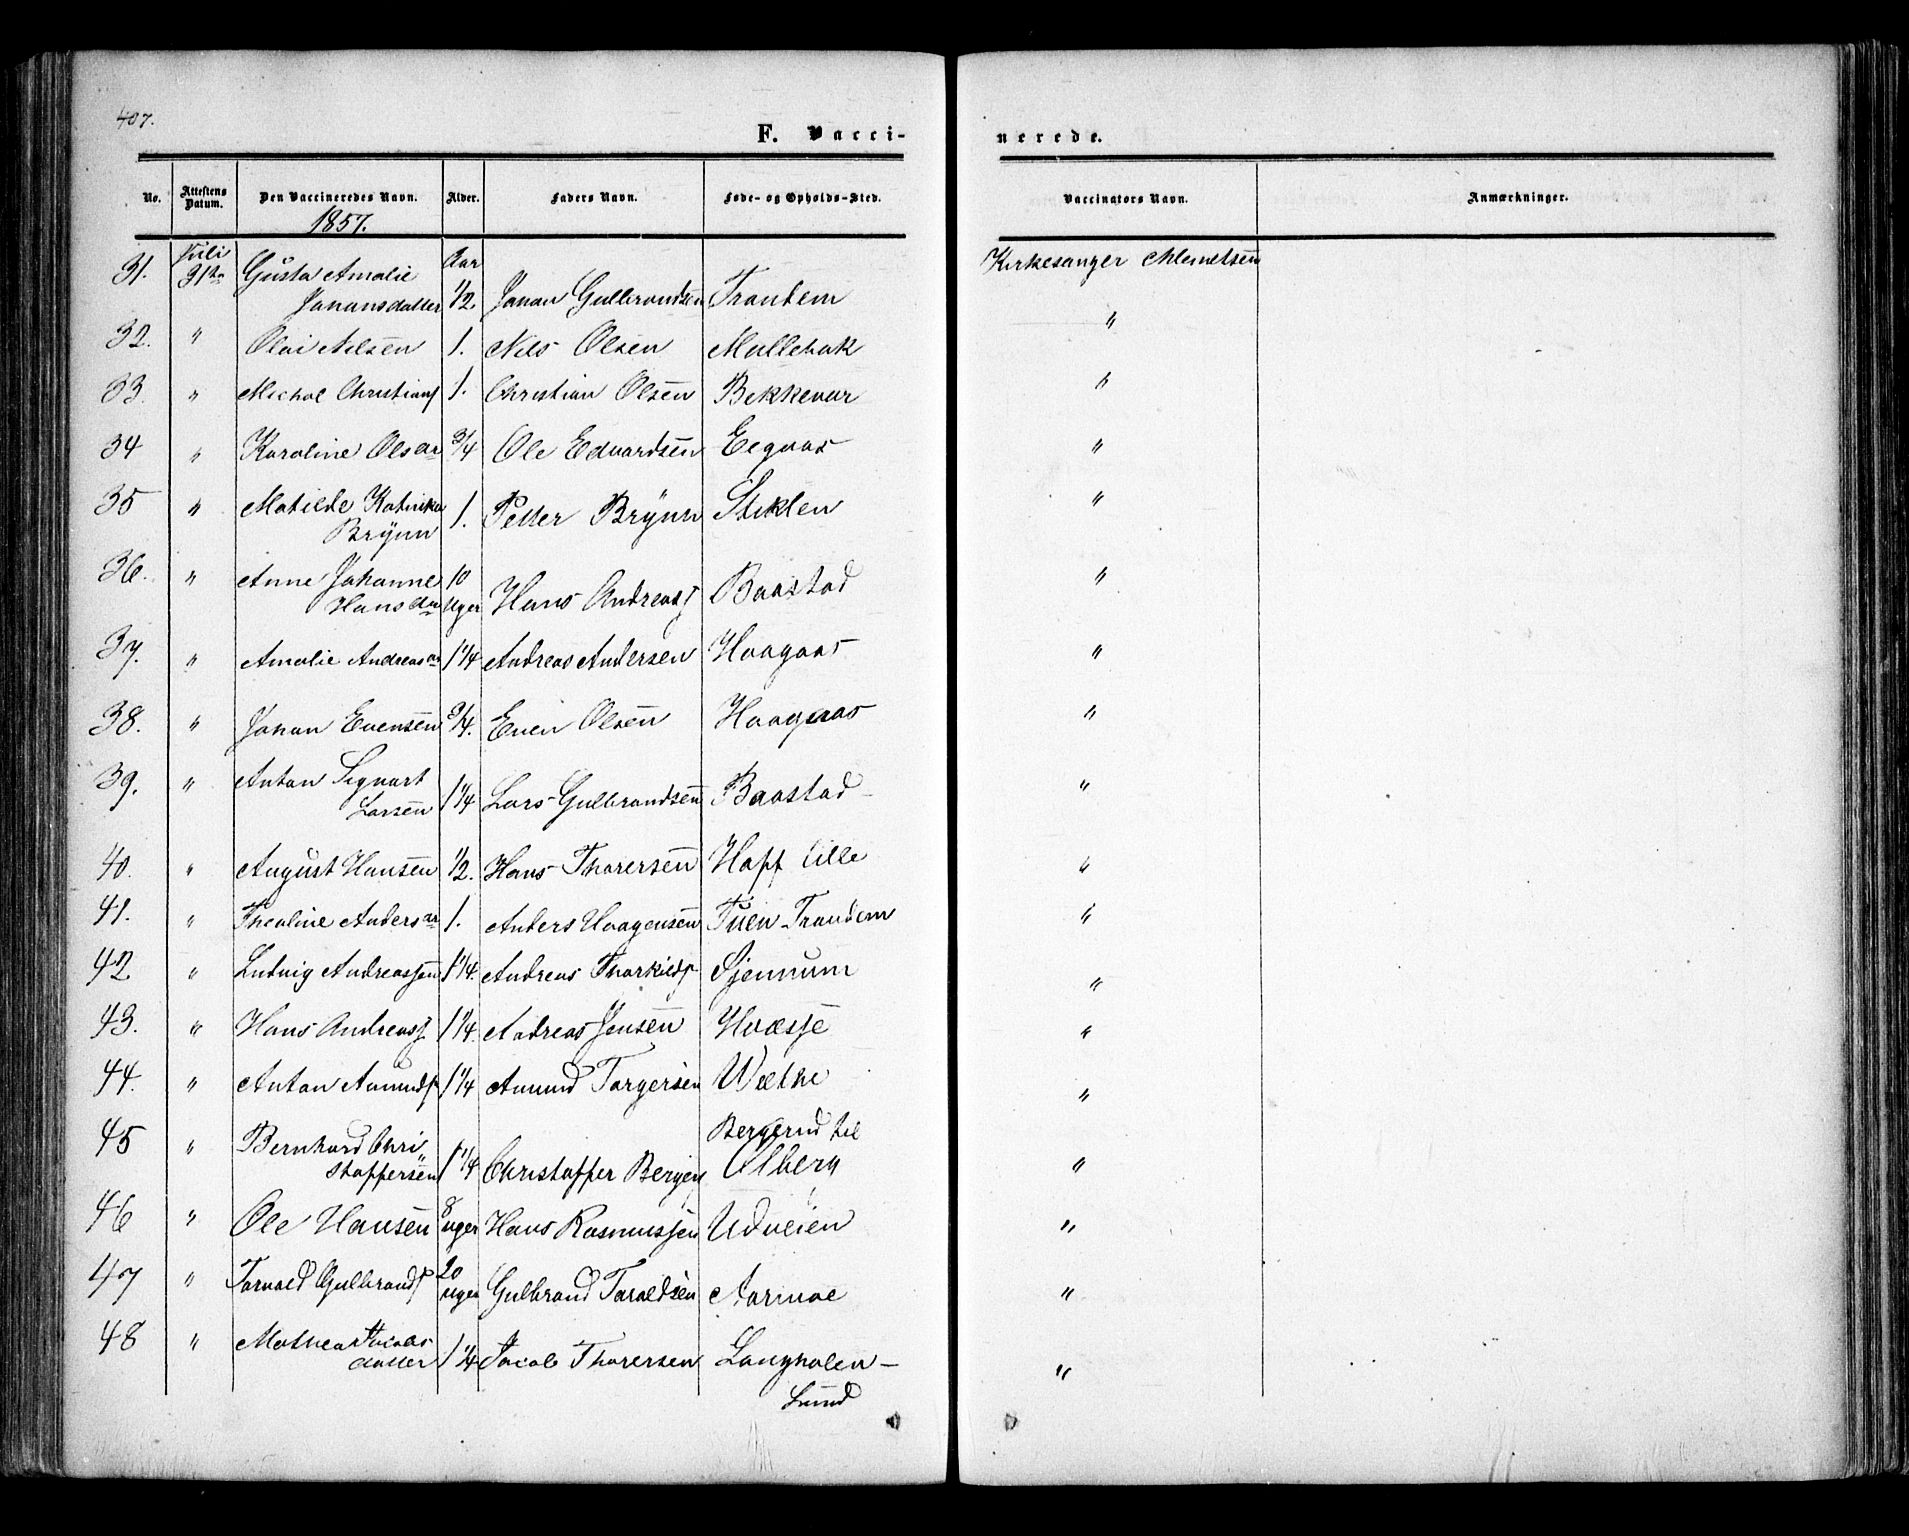 407.
F. Vacci-
nerede.
No. Attestens Datum. Den Vaccineredes Navn. Alder. Faders Navn. Føde- og Opholds-Sted. Vaccinators Navn. Anmærkninger.
1857.
31. Juli 31te Gusta Amalie Aar Kirkesanger
Johansdatter 1/2. Johan Gulbrandsen Trandem
32. " Olai Nilsen 1. Nils Olsen Mollehak "
33. " Michal Christians 1. Christian Olsen Bekkevar "
34 " Karoline Olsdr 3/4 Ole Edvardsen Eegaas "
35 " Matilde Katinka
Brÿnn 1. Petter Brÿnn Stiklen "
36. " Anne Johanne 10
Hansda Uger Hans Andreas Baastad "
37. " Amalie Andreasdr 1 1/4 Andreas Andersen Haagaas "
38. " Johan Evensen 3/4. Even Olsen Haagaas "
39. " Anton Sigvart
Larsen 1 1/4 Lars Gulbrandsen Baastad "
40. " August Hansen 1/2. Hans Thorersen Hoff lille "
41. " Theoline Andersdr 1. Anders Haagensen Tuen Trandem "
42 " Ludvig Andreassen 1 1/4. Andreas Thorkilds Sjennum "
43. " Hans Andreas 1 1/4. Andreas Jensen Hvæsje "
44. " Anton Amunds 1 1/4 Amund Torgersen Wethe "
45 " Bernhard Chri Bergerud til
stoffersen 1 1/4 Christoffer Bergen Ulberg "
46 " Ole Hansen 8 uger Hans Rasmussen Udveien "
47 " Torvald Gulbrands 20 uger Gulbrand Toraldsen Aarmoe "
48 " Mathea Jacobs
datter 1 1/4 Jacob Thorersen Langholen-
Lund "